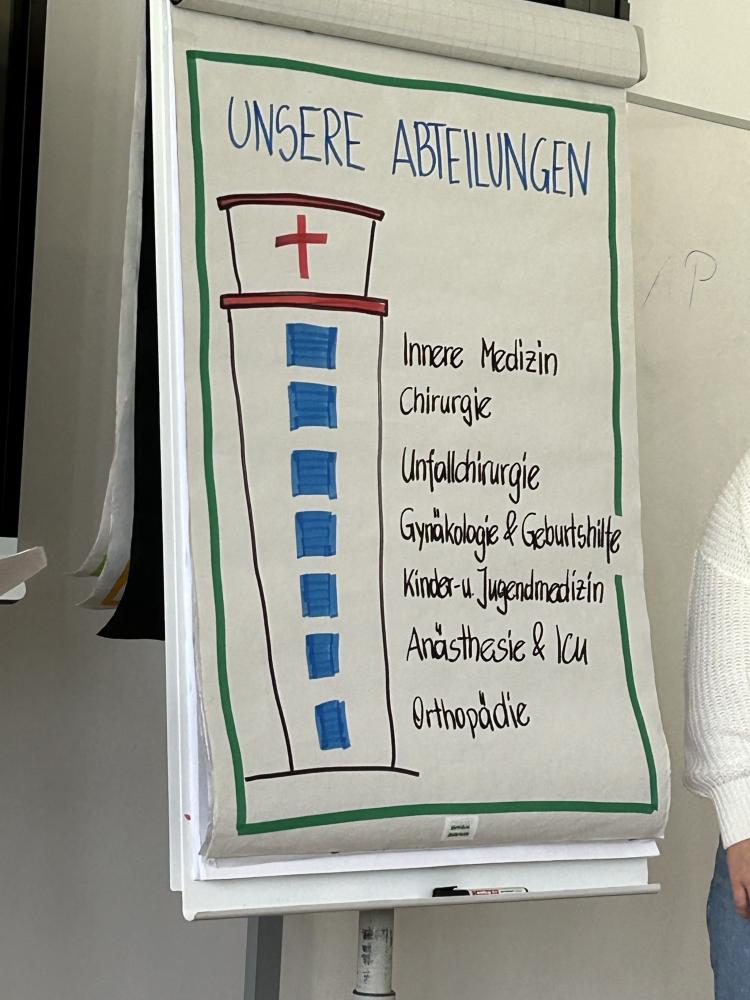 UNSERE ABTEILUNGEN
Innere Medizin
Chirurgie
Unfallchirurgie
Gynäkologie & Geburtshilfe
Kinder-u. Jugendmedizin
Anästhesie & ICU
Orthopädie
P